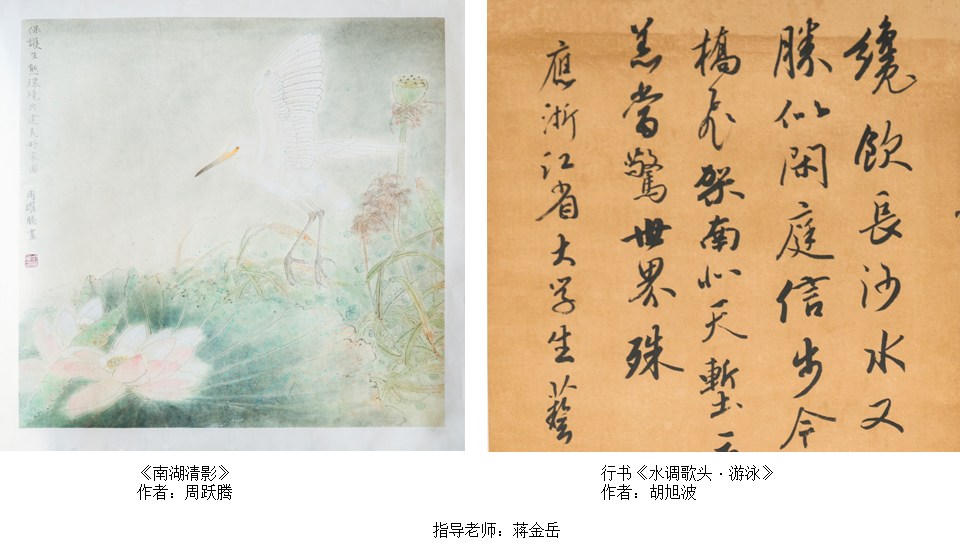 保護生態環境共建美好家園
周躍騰畫
纔飲長沙水又
勝似閑庭信步今
橋飛架南北天塹
恙當驚世界殊
應浙江省大学生藝
《南湖清影》
作者：周跃腾
行书《水调歌头·游泳》
作者：胡旭波
指导老师：蒋金岳